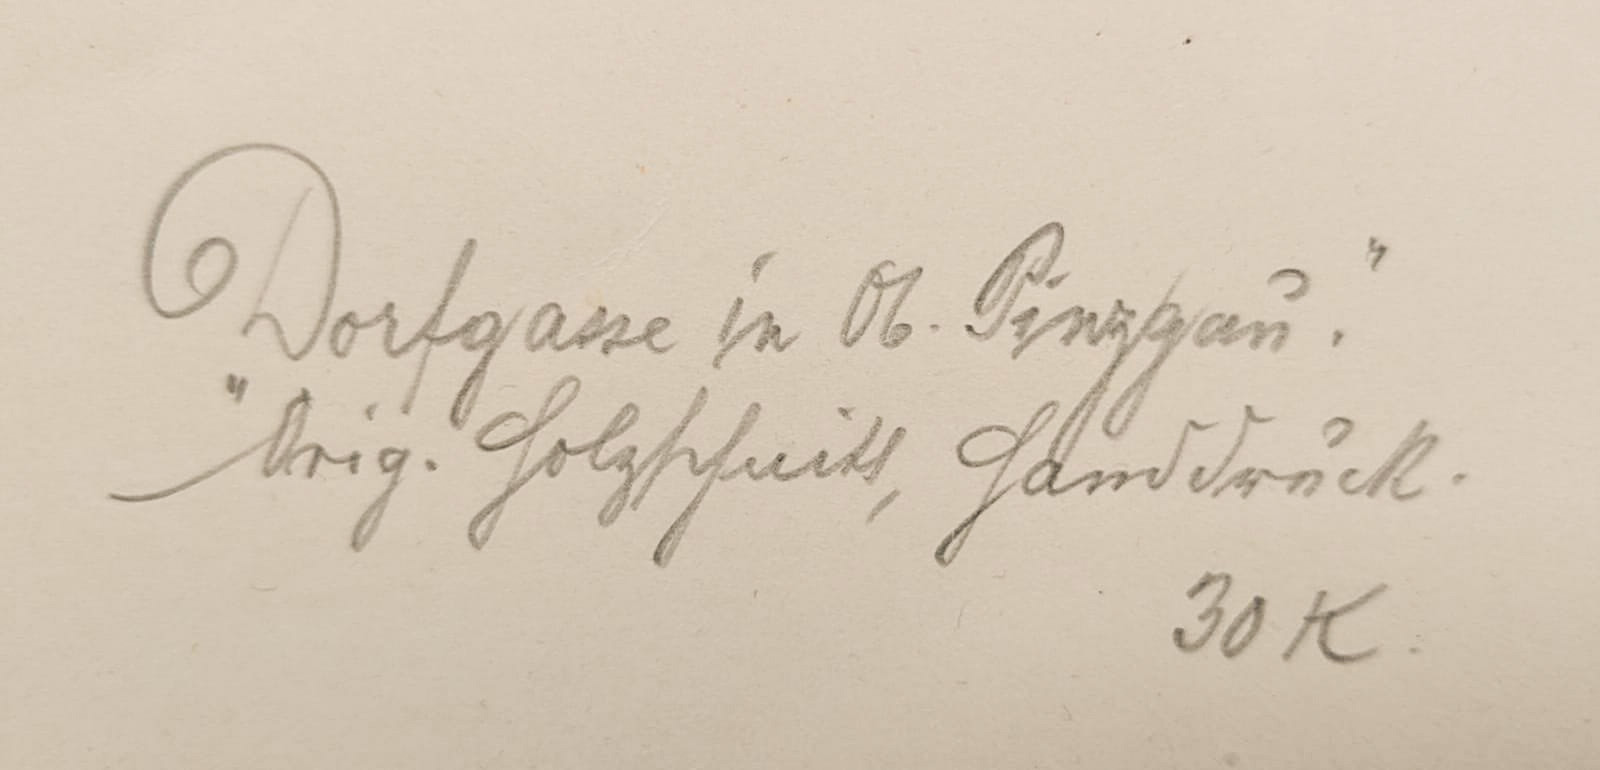 Dorfgasse in Ob. Pinzgau."
"Orig. Holzschnitt, Handdruck.
30 K.